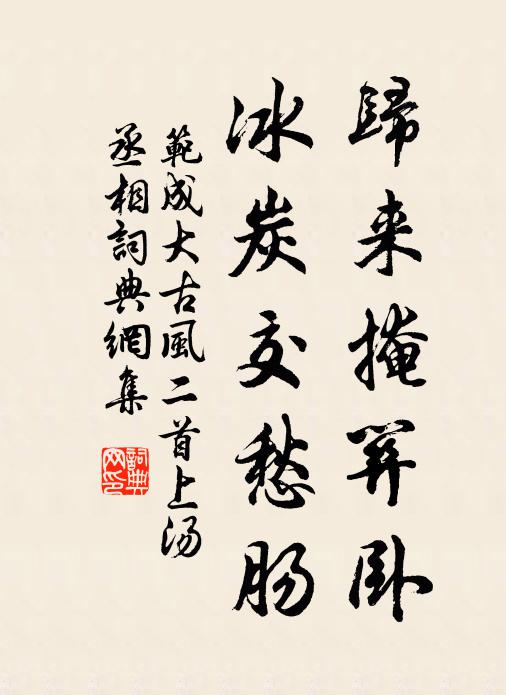 歸来掩關卧
冰炭交愁腸
範成大古風二首上湯
丞相詞典網集
詞典
网印